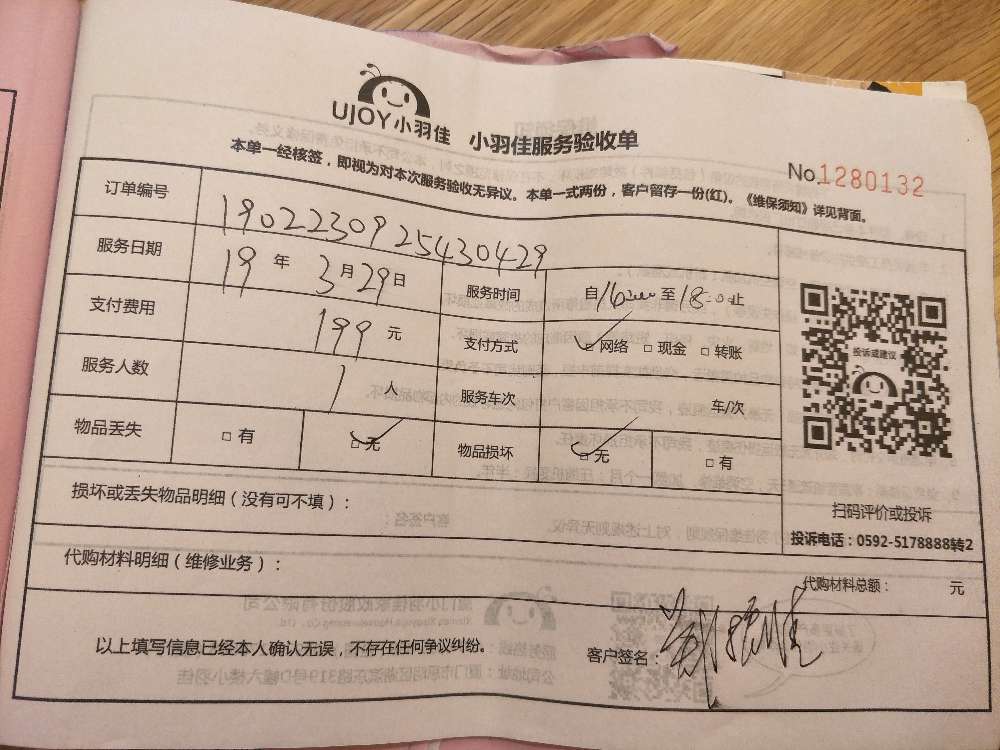 UJOY小羽佳 小羽佳服务验收单
No.1280132
本单一经核签，即视为对本次服务验收无异议。本单一式两份，客户留存一份(红)。《维保须知》详见背面。
订单编号 1902230925430429
服务日期 19 年 3 月 29 日 服务时间 自 16:00 至 18:00 止
支付费用 199 元 支付方式 ☑网络 □现金 □转账
服务人数 1 人 服务车次 车/次
物品丢失 □有 ☑无 物品损坏 ☑无 □有
投诉或建议
扫码评价或投诉
投诉电话：0592-5178888转2
损坏或丢失物品明细（没有可不填）：
代购材料明细（维修业务）：
代购材料总额： 元
以上填写信息已经本人确认无误，不存在任何争议纠纷。
客户签名：